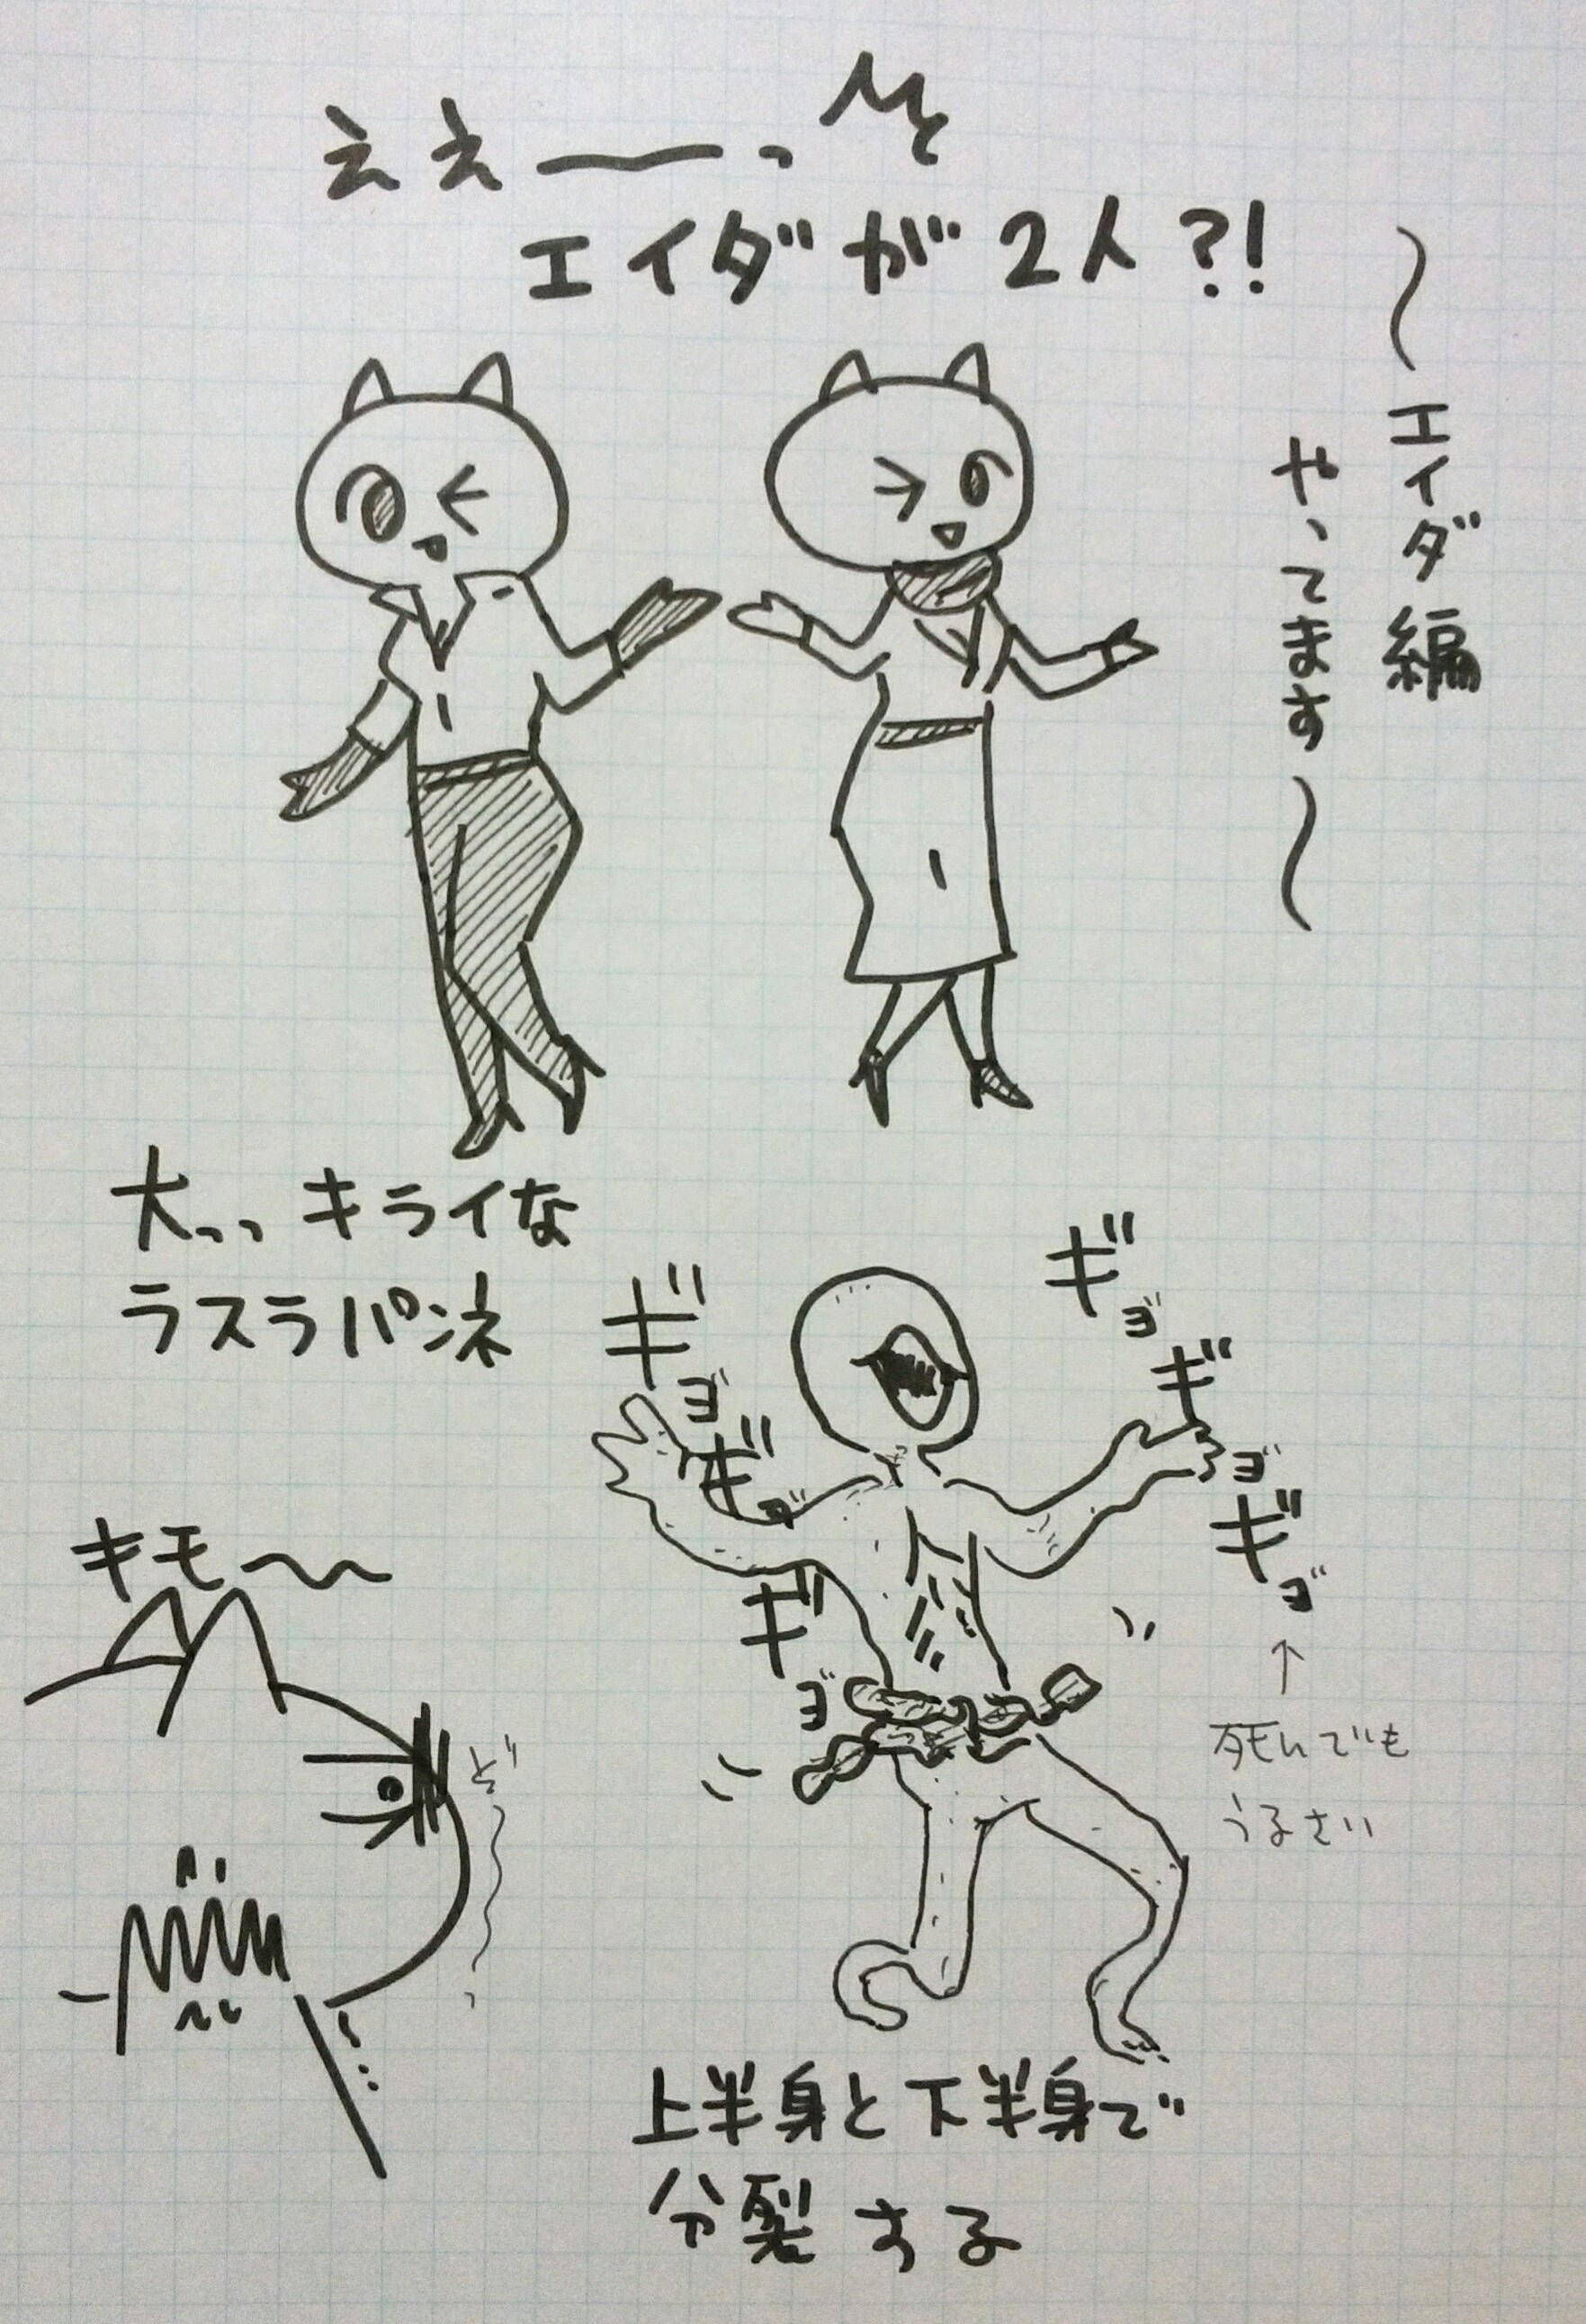 ええーーっ
エイダが2人?!
〜エイダ編
やってます〜
大っっキライな
ラスラパンネ
ギョギョ
ギョギョギョ
ギョ
キモ〜〜
ど〜
死んでも
うるさい
上半身と下半身で
分裂する